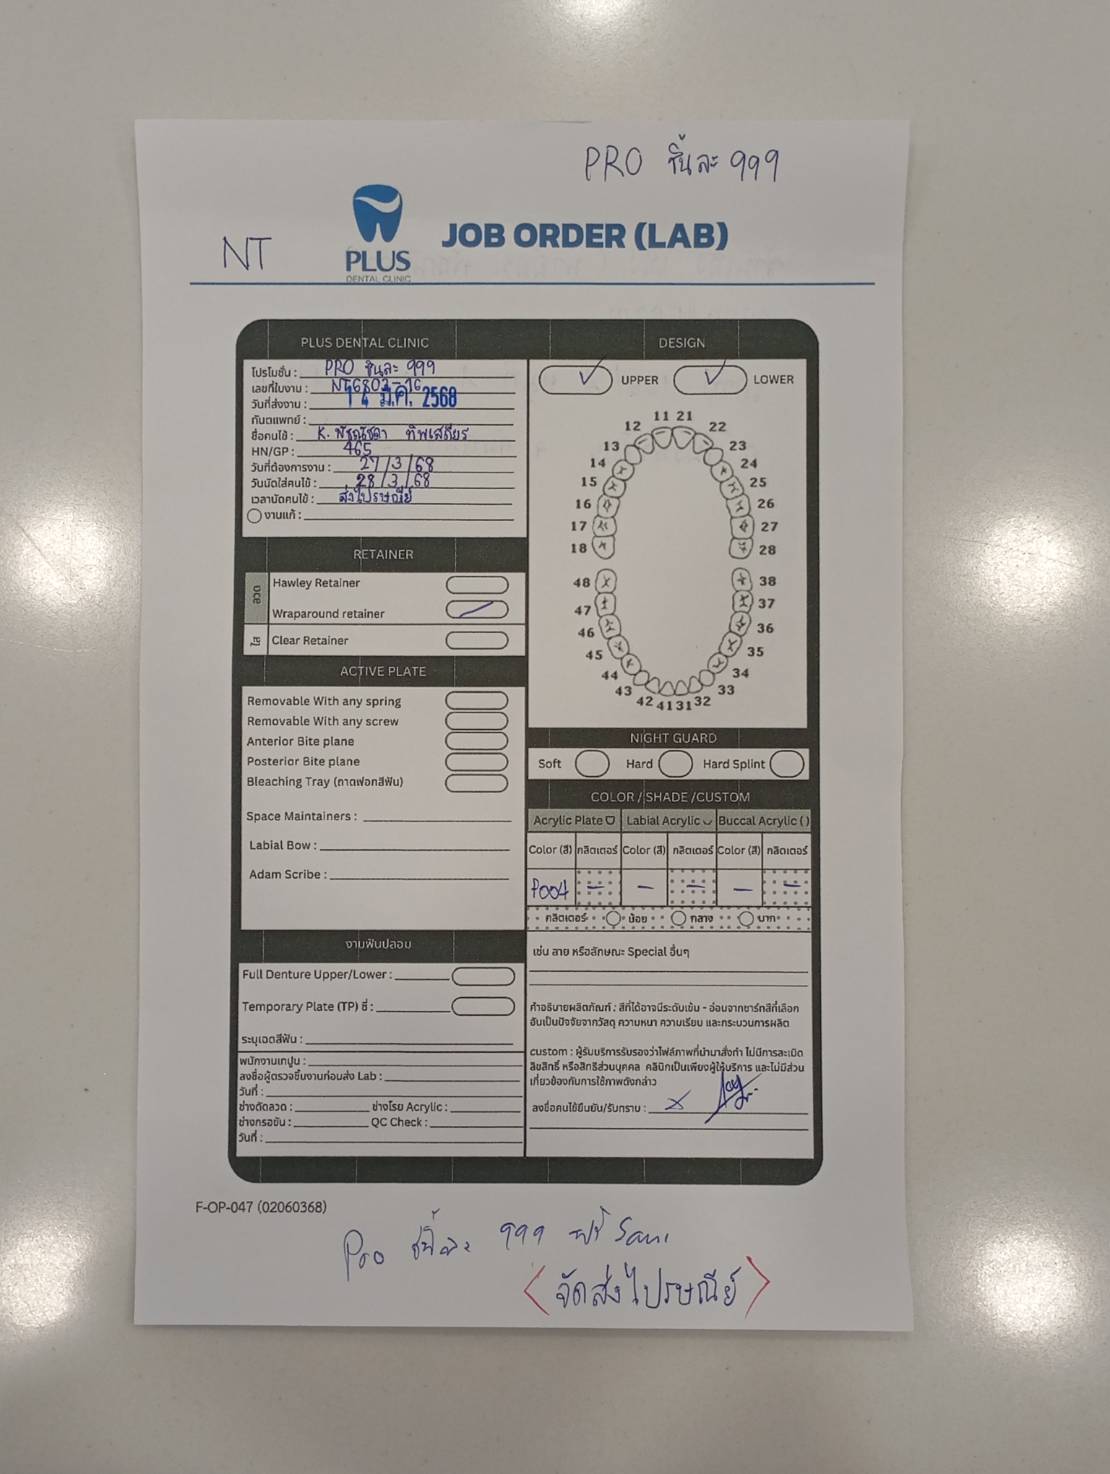 PRO ชิ้นละ 999
NT
PLUS
DENTAL CLINIC
JOB ORDER (LAB)
PLUS DENTAL CLINIC
โปรโมชั่น : PRO ชิ้นละ 999
เลขที่ใบงาน : NT6803-16
วันที่ส่งงาน : 14 มี.ค. 2568
ทันตแพทย์ :
ชื่อคนไข้ : K. พัชณัชดา ทิพเสถียร
HN/GP : 465
วันที่ต้องการงาน : 27/3/68
วันนัดใส่คนไข้ : 28/3/68
เวลานัดคนไข้ : ส่งไปรษณีย์
งานแก้ :
RETAINER
ลวด
Hawley Retainer
Wraparound retainer
ใส
Clear Retainer
ACTIVE PLATE
Removable With any spring
Removable With any screw
Anterior Bite plane
Posterior Bite plane
Bleaching Tray (ถาดฟอกสีฟัน)
Space Maintainers :
Labial Bow :
Adam Scribe :
งานฟันปลอม
Full Denture Upper/Lower :
Temporary Plate (TP) ซี่ :
ระบุเฉดสีฟัน :
พนักงานเทปูน :
ลงชื่อผู้ตรวจชิ้นงานก่อนส่ง Lab :
วันที่ :
ช่างดัดลวด : ช่างโรย Acrylic :
ช่างกรอขัน : QC Check :
วันที่ :
DESIGN
UPPER LOWER
11 21
12 22
13 23
14 24
15 25
16 26
17 27
18 28
48 38
47 37
46 36
45 35
44 34
43 33
42 41 31 32
NIGHT GUARD
Soft Hard Hard Splint
COLOR / SHADE /CUSTOM
Acrylic Plate Labial Acrylic Buccal Acrylic ( )
Color (สี) กลิตเตอร์ Color (สี) กลิตเตอร์ Color (สี) กลิตเตอร์
P004 – – – – –
กลิตเตอร์ น้อย กลาง มาก
เช่น ลาย หรือลักษณะ Special อื่นๆ
คำอธิบายผลิตภัณฑ์ : สีที่ได้อาจมีระดับเข้ม - อ่อนจากชาร์ทสีที่เลือก
อันเป็นปัจจัยจากวัสดุ ความหนา ความเรียบ และกระบวนการผลิต
custom : ผู้รับบริการรับรองว่าไฟล์ภาพที่นำมาสั่งทำ ไม่มีการละเมิด
ลิขสิทธิ์ หรือสิทธิส่วนบุคคล คลินิกเป็นเพียงผู้ให้บริการ และไม่มีส่วน
เกี่ยวข้องกับการใช้ภาพดังกล่าว
ลงชื่อคนไข้ยืนยัน/รับทราบ : X
F-OP-047 (02060368)
Pro ชิ้นละ 999 ฟรี
< จัดส่งไปรษณีย์ >